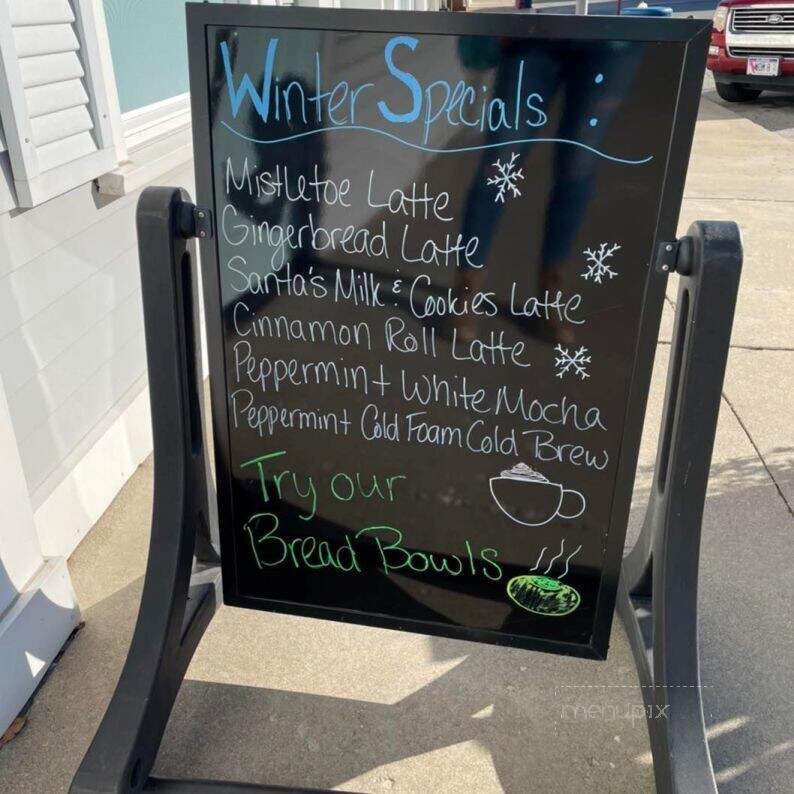 Winter Specials :
Mistletoe Latte
Gingerbread Latte
Santa's Milk & Cookies Latte
Cinnamon Roll Latte
Peppermint White Mocha
Peppermint Cold Foam Cold Brew
Try our
Bread Bowls
Ford
menupix